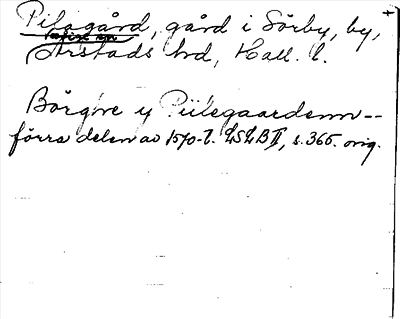 Pilagård, gård i Sörby, by,
Årstads hrd, Hall. l.
Börgwe y Piilegaardenn--
förra delen av 1570-t. LSLB II, s. 365. orig.